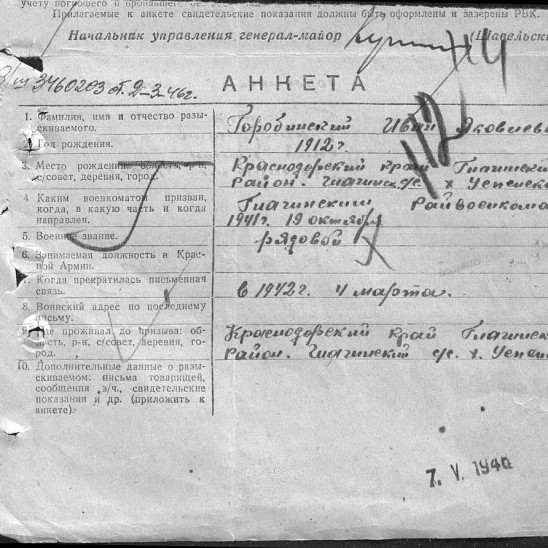 учету погибшего и пропавшего без
Прилагаемые к анкете свидетельские показания должны быть оформлены и заверены РВК.
Начальник управления генерал-майор (Шавельски
3460203 от 2-3-46г.
АНКЕТА
1. Фамилия, имя и отчество разы-
скиваемого.
Горобинский Иван Яковлев
2. Год рождения.
1912 г.
3. Место рождения: область, р-н,
с/совет, деревня, город.
Краснодорский край Гиагинск
район. Гиагинск с/с. х Успенск
4 Каким военкоматом призван,
когда, в какую часть и когда
направлен.
Гиагинский Райвоенкома
1941г. 19 октября
5. Военное звание.
рядовой
6. Занимаемая должность в Крас-
ной Армии.
7. Когда прекратилась письменная
связь.
в 1942 г. 4 марта.
8. Воинский адрес по последнему
письму.
9. Где проживал до призыва: об-
ласть, р-н, с/совет, деревня, го-
род.
Краснодорский край Гиагинск
район. Гиагинский с/с. х. Успен
10. Дополнительные данные о разы-
скиваемом: письма товарищей,
сообщения з/ч., свидетельские
показания и др. (приложить к
анкете).
7. V. 1946